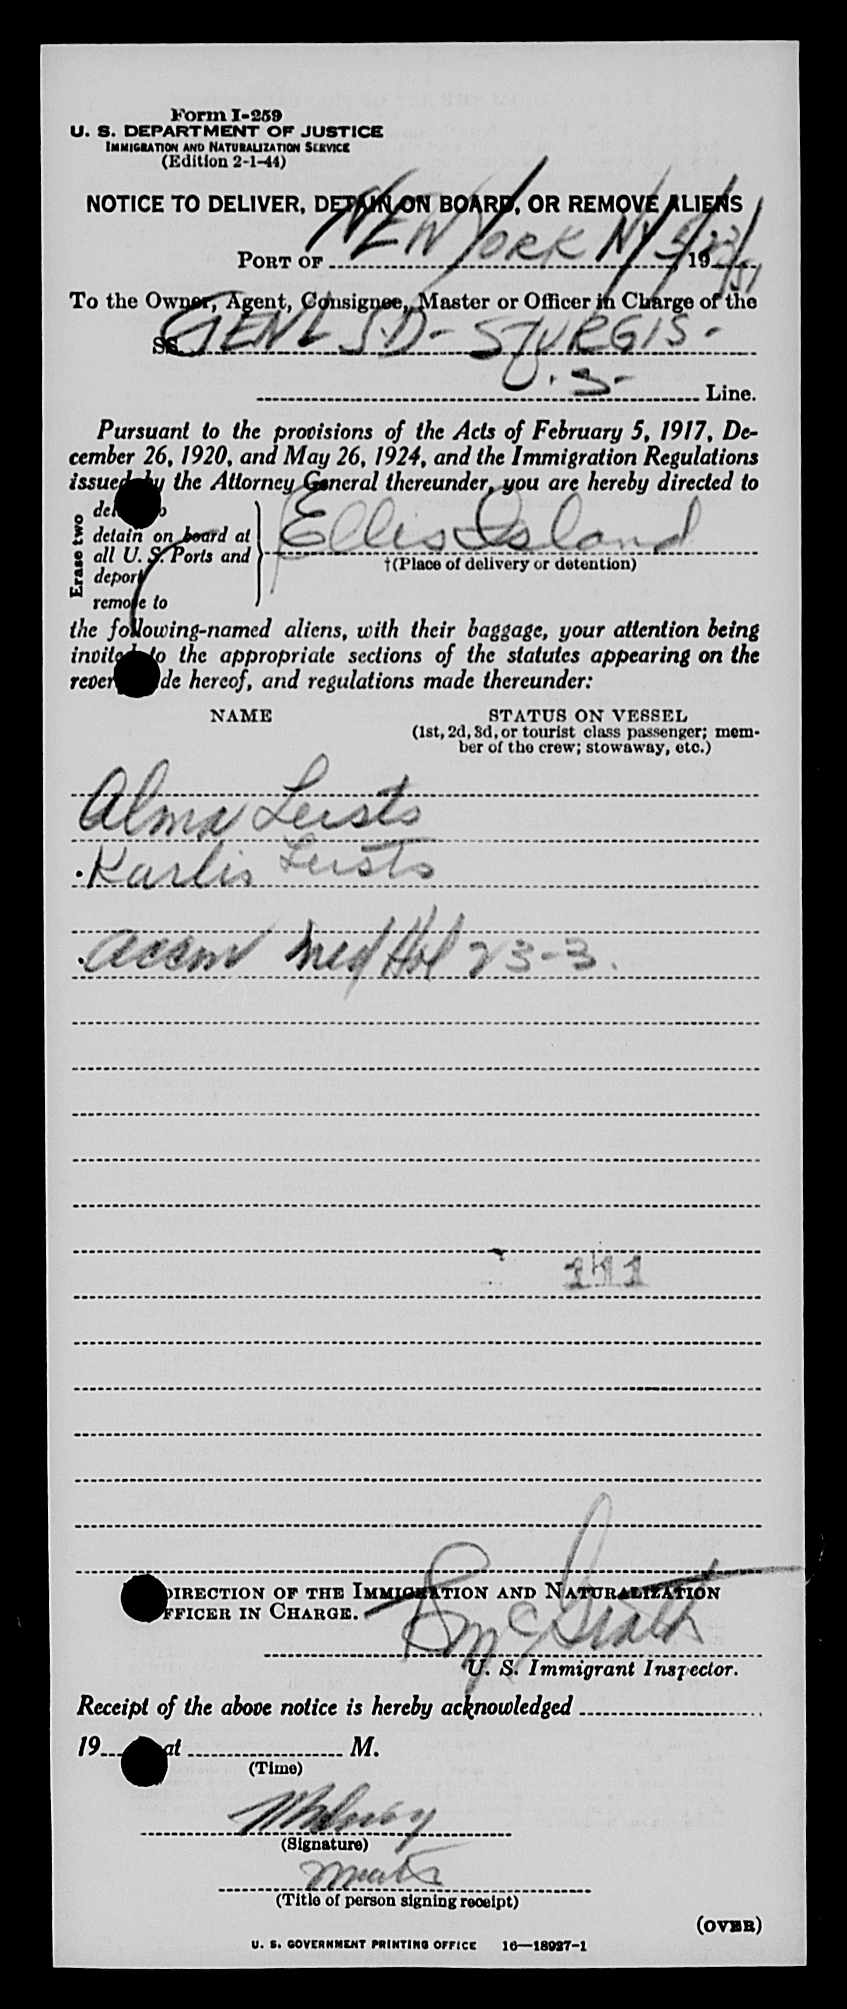 Form I-259
U. S. DEPARTMENT OF JUSTICE
IMMIGRATION AND NATURALIZATION SERVICE
(Edition 2-1-44)
NOTICE TO DELIVER, DETAIN ON BOARD, OR REMOVE ALIENS
PORT OF NEW YORK NY 19
To the Owner, Agent, Consignee, Master or Officer in Charge of the
SS GENL S.D- STURGIS-
U.S- Line.
Pursuant to the provisions of the Acts of February 5, 1917, De-
cember 26, 1920, and May 26, 1924, and the Immigration Regulations
issued by the Attorney General thereunder, you are hereby directed to
Erase two
detain on board at
all U. S. Ports and
deport
remove to
Ellis Island
†(Place of delivery or detention)
the following-named aliens, with their baggage, your attention being
invited to the appropriate sections of the statutes appearing on the
reverse side hereof, and regulations made thereunder:
NAME
STATUS ON VESSEL
(1st, 2d, 3d, or tourist class passenger; mem-
ber of the crew; stowaway, etc.)
Alma Leists
Karlis Leists
accm Med Hol 23-3.
111
DIRECTION OF THE IMMIGRATION AND NATURALIZATION
OFFICER IN CHARGE.
U. S. Immigrant Inspector.
Receipt of the above notice is hereby acknowledged
19 at M.
(Time)
(Signature)
(Title of person signing receipt)
(OVER)
U. S. GOVERNMENT PRINTING OFFICE 16—18927-1